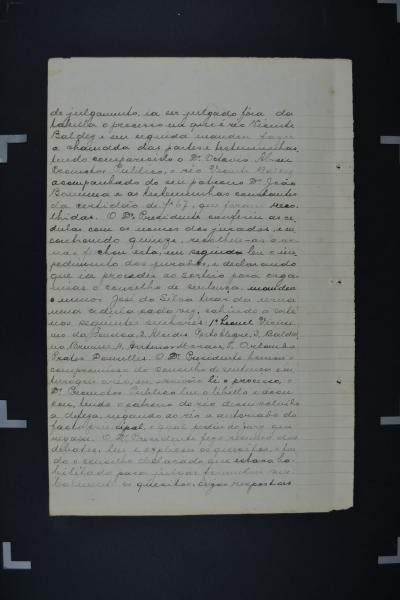 de julgamento, ia ser julgado fóra da
tabella o processo em que é réo Vicente
Baldez e em seguida mandou fazer
a chamada das partes e testemunhas,
tendo comparecido o Dr. Octavio Abreu
Promotor Publico, o réo Vicente Baldez
acompanhado do seu patrono Dr. João
e as testemunhas constantes
da certidão de fs 67, que foram reco-
lhidas. O Dr. Presidente conferiu as ce-
dulas com os nomes dos jurados, em
contrando quinze, recolheu-as a ur-
na e fechou esta, em seguida leu o im-
pedimento dos jurados, e declarando
que ia proceder ao sorteio para orga-
nisar o conselho de sentença, mandou
o menor José da Silva tirar da urna
uma cedula cada vez, sahindo a sorte
nos seguintes senhores: 1º
da 2, Porto Alegre, 3, Baldo-
4, Antonio Moraes, 5, Orlando
Prates Dornelles. O Dr. Presidente tomou o
compromisso do conselho de sentença em
o processo, o
Dr. Promotor Publico leu o libello e accu-
sou, tendo o patrono do réo desenvolvido
a defeza, negando ao réo a autoria do
facto principal, o qual pediu do jury que
negasse. O Dr. Presidente fez o resumo dos
debates, leu e explicou os quesitos, e ten-
do o conselho declarado que estava ha-
bilitado para julgar
os quesitos, cujas respostas